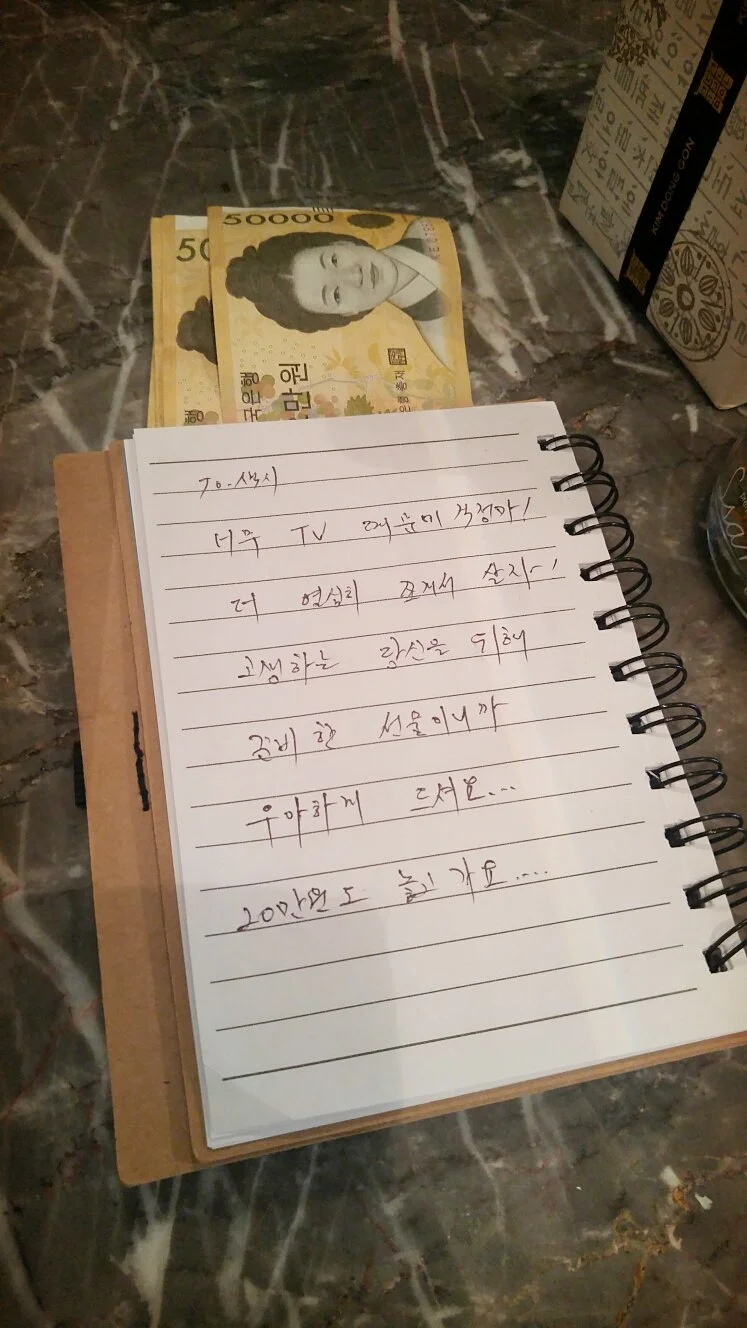 50000
50
만원
국은행
행
KIM DONG GON
To. 색시
너무 TV 때문에 걱정마!
더 열심히 모아서 살자~!
고생하는 당신을 위해
준비한 선물이니까
우아하게 드셔요...
20만원도 놓고 가요....